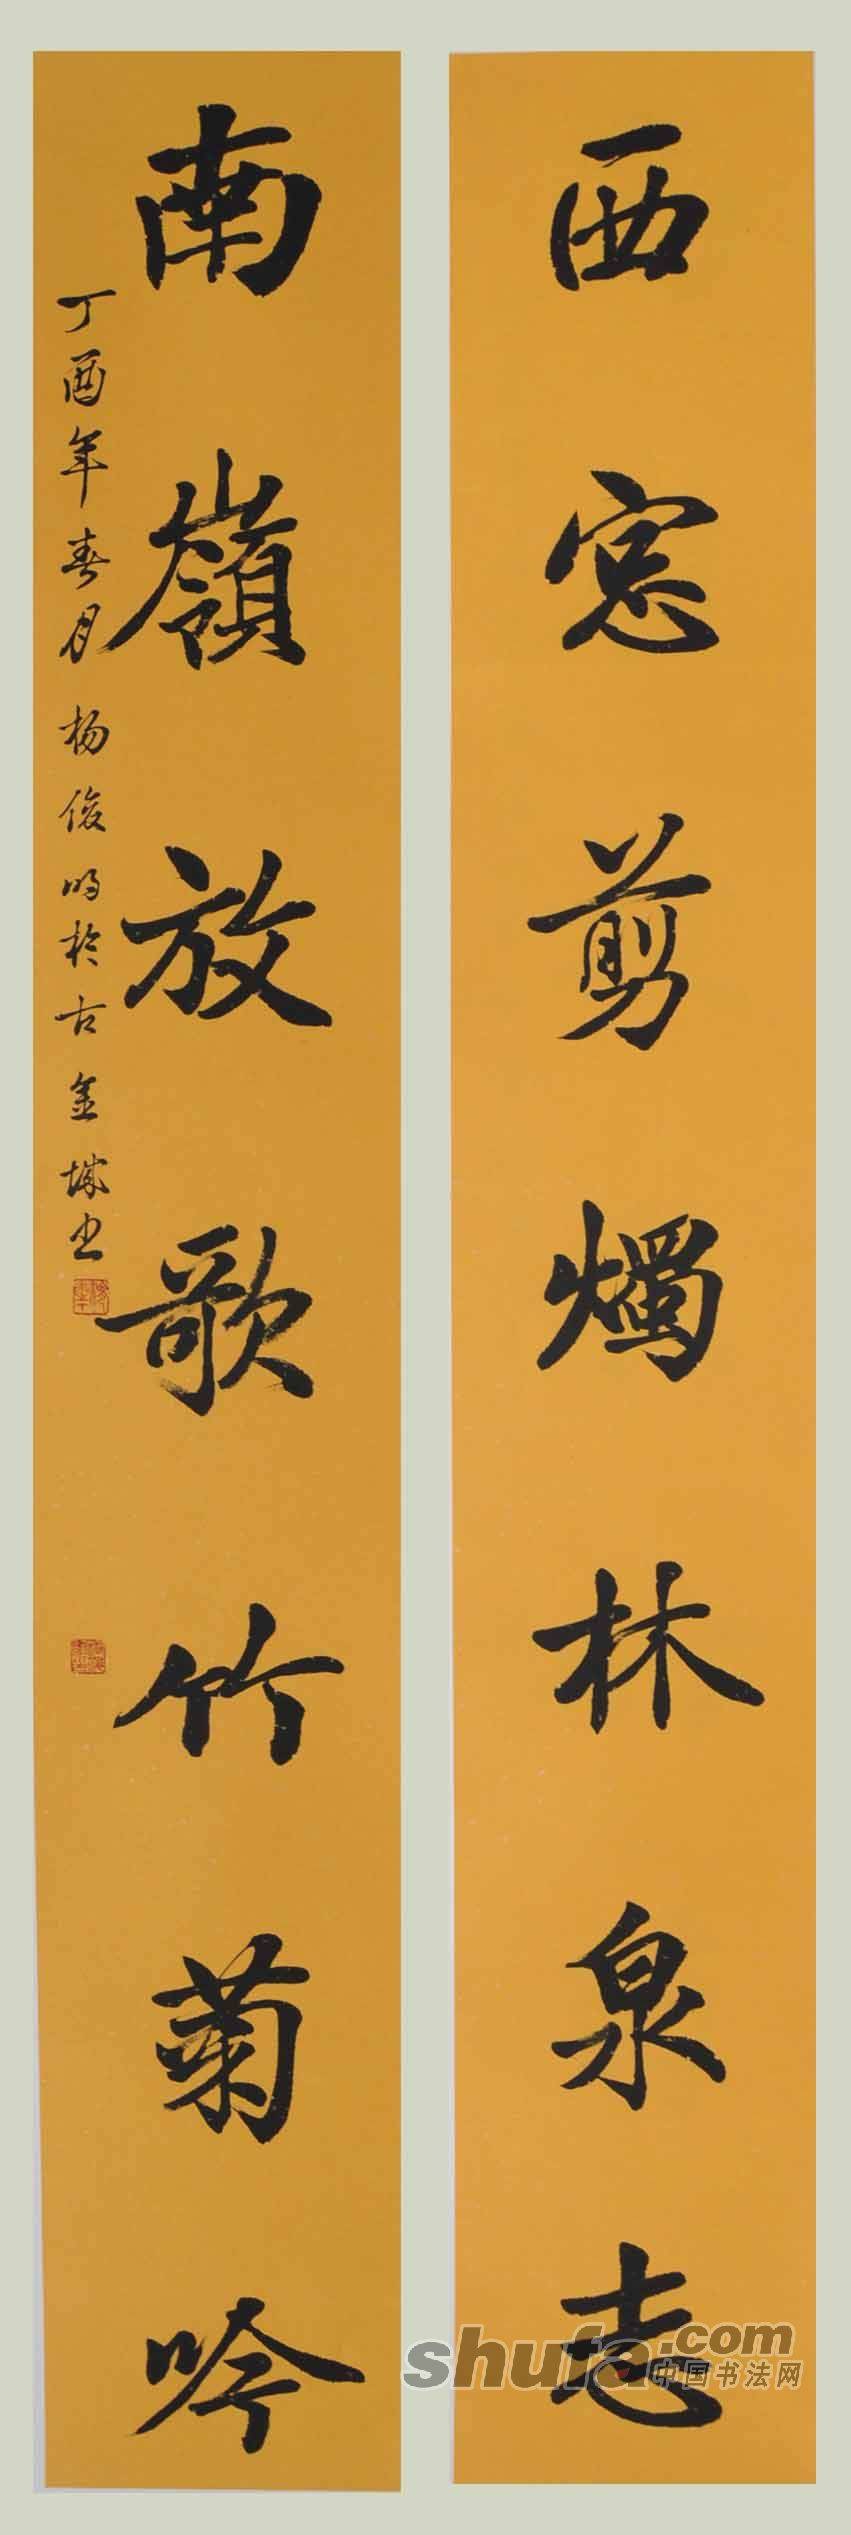 西窓剪燭林泉志
南嶺放歌竹菊吟
丁酉年春月杨俊明於古金城书
shufa.com
中国书法网